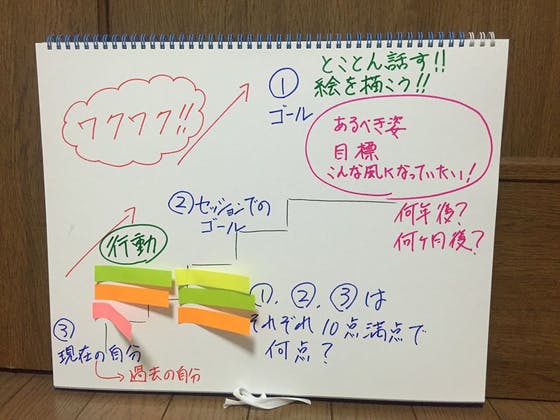 とことん話す!!
絵を描こう!!
①
ゴール
ワクワク!!
あるべき姿
目標
こんな風になっていたい!
②セッションでの
ゴール
何年後?
何ヶ月後?
行動
①、②、③は
それぞれ10点満点で
何点?
③
現在の自分
過去の自分